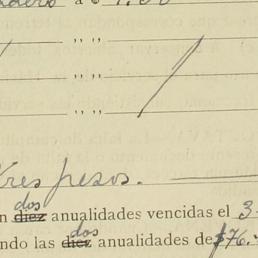 ,, ,,
,, ,,
Tres pesos.
dos
n diez anualidades vencidas el 3-
dos
ndo las diez anualidades de $76.-